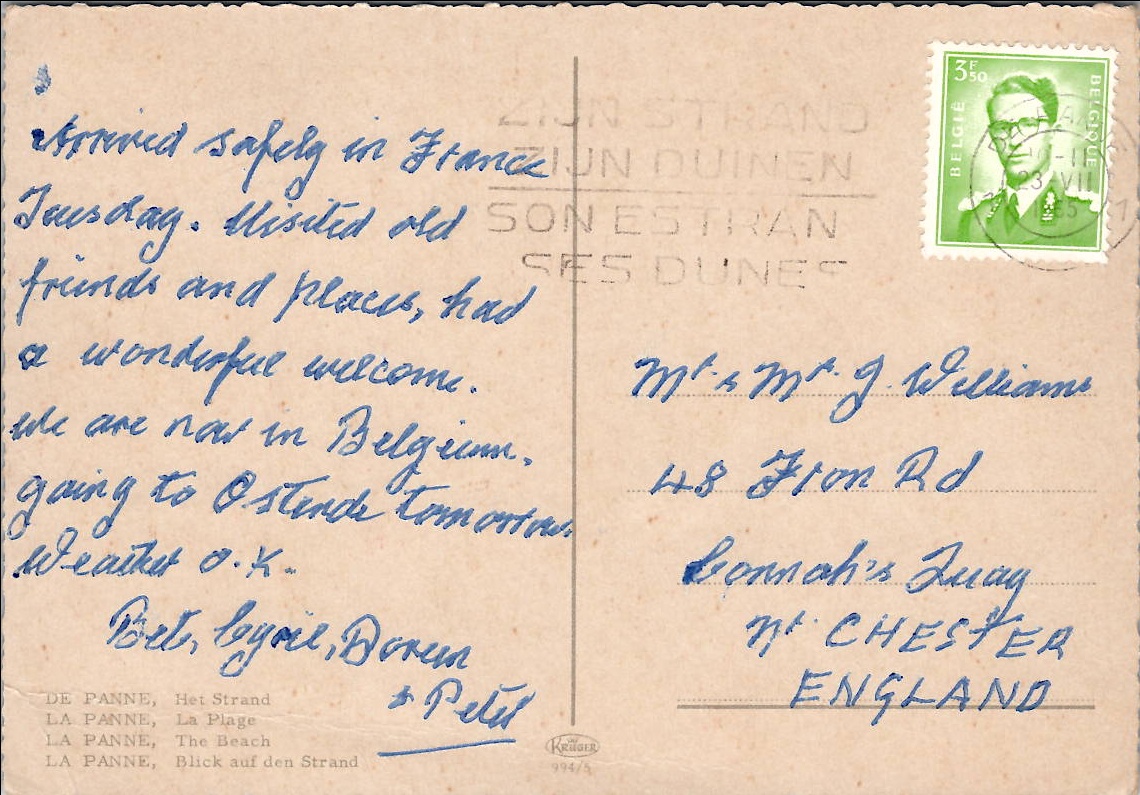 Arrived safely in France
Tuesday. Visited old
friends and places, had
a wonderful welcome.
We are now in Belgium,
going to Ostende tomorrow.
Weather O.K.
Bet, Cyril, Doreen
& Peter
DE PANNE, Het Strand
LA PANNE, La Plage
LA PANNE, The Beach
LA PANNE, Blick auf den Strand
KRÜGER
994/5
ZIJN STRAND
ZIJN DUINEN
SON ESTRAN
SES DUNES
3F50
BELGIË
BELGIQUE
23 VII
Mr. & Mr. J. Williams
48 Fron Rd
Connah's Quay
Nr. CHESTER
ENGLAND